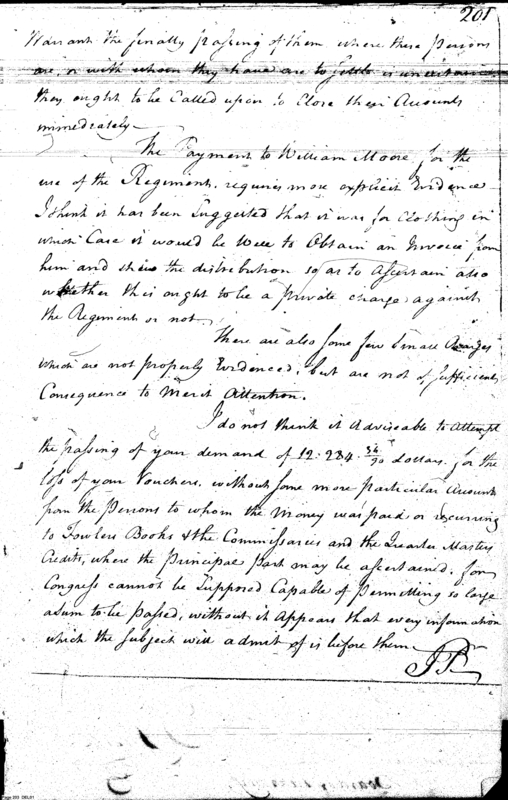 201
Warrant the finally passing of them where these Persons
are, or with whom they have are to Settle is uncertain
they ought to be Called upon to Close their Accounts
immediately —
The Payment to William Moore for the
use of the Regiment. requires more explicit Evidence
I think it has been Suggested that it was for Cloathing in
which Case it would be well to Obtain an Invoice from
him and shew the distribution so as to Ascertain also
whether this ought to be a private charge against
the Regiment or not
There are also some few Small Charges
which are not properly Evidenced, but are not of Sufficient
Consequence to Merit Attention.
I do not think it Adviseable to Attempt
the passing of your demand of 12.284. 54/90 Dollars. for the
loss of your Vouchers. without some more particular Accounts
from the Persons to whom the Money was paid or recurring
to Fowlers Books & the Commissaries and the Quarter Masters
Credits, where the principal part may be ascertained. for
Congress cannot be Supposed Capable of permitting so large
a Sum to be passed, without it appears that every information
which the subject will admit of is before them
Page 203 DEL01